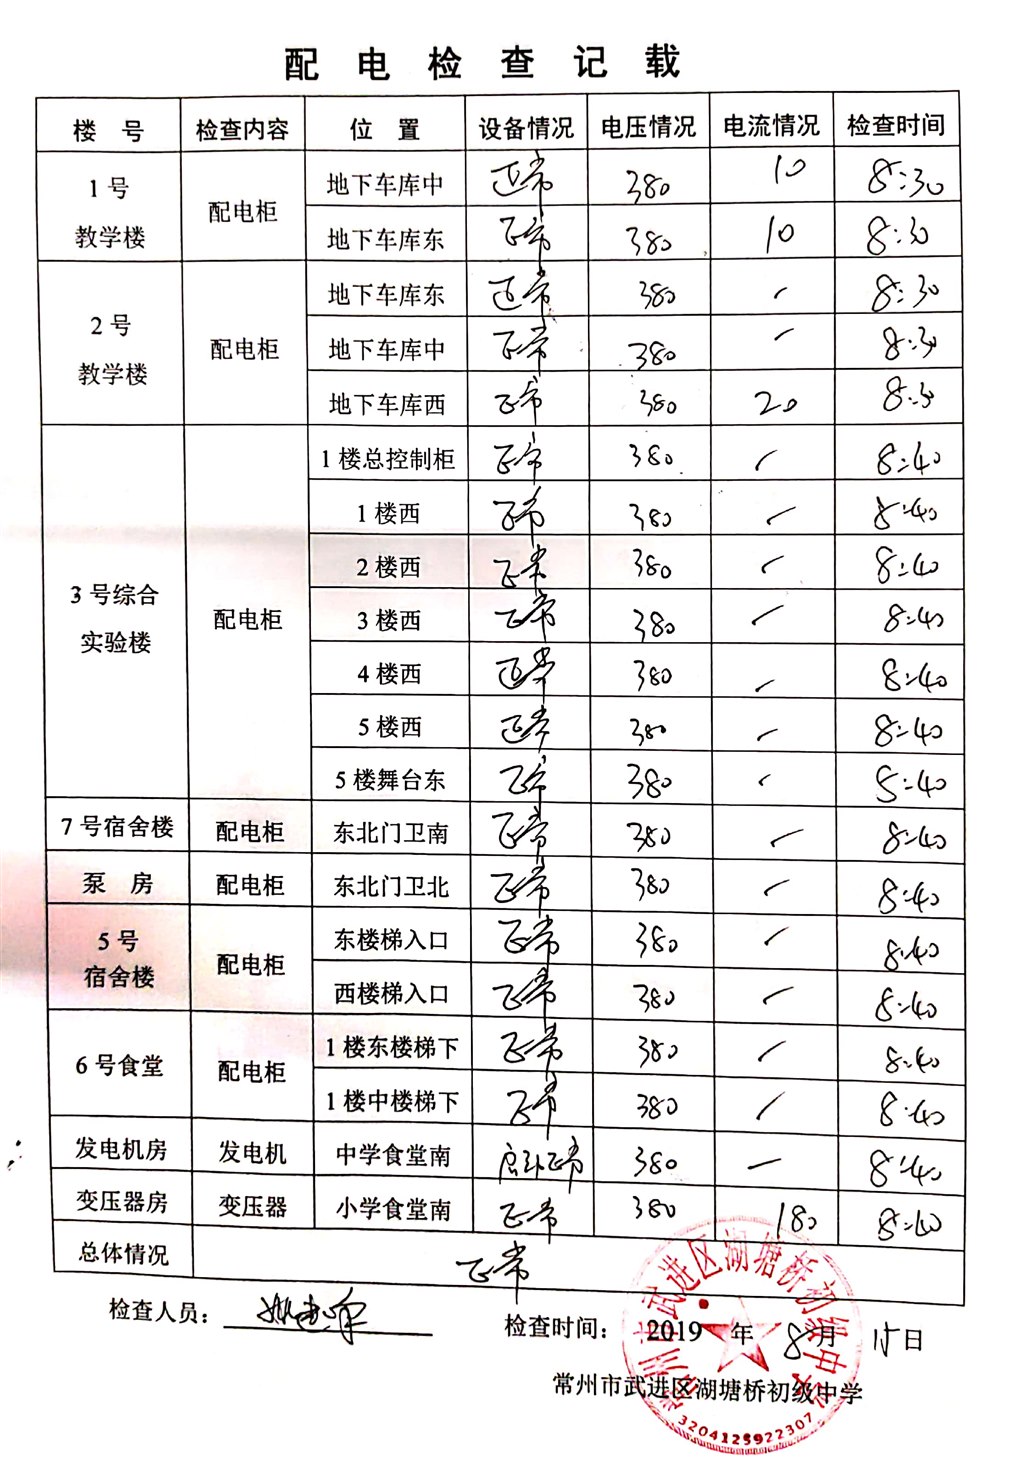 配电检查记载
楼号 检查内容 位置 设备情况 电压情况 电流情况 检查时间
1号教学楼 配电柜 地下车库中 正常 380 10 8:30
地下车库东 正常 380 10 8:30
2号教学楼 配电柜 地下车库东 正常 380 / 8:30
地下车库中 正常 380 / 8:30
地下车库西 正常 380 20 8:30
3号综合实验楼 配电柜 1楼总控制柜 正常 380 / 8:40
1楼西 正常 380 / 8:40
2楼西 正常 380 / 8:40
3楼西 正常 380 / 8:40
4楼西 正常 380 / 8:40
5楼西 正常 380 / 8:40
5楼舞台东 正常 380 / 8:40
7号宿舍楼 配电柜 东北门卫南 正常 380 / 8:40
泵房 配电柜 东北门卫北 正常 380 / 8:40
5号宿舍楼 配电柜 东楼梯入口 正常 380 / 8:40
西楼梯入口 正常 380 / 8:40
6号食堂 配电柜 1楼东楼梯下 正常 380 / 8:40
1楼中楼梯下 正常 380 / 8:40
发电机房 发电机 中学食堂南 启动正常 380 — 8:40
变压器房 变压器 小学食堂南 正常 380 180 8:40
总体情况 正常
检查人员： 检查时间： 2019 年 8 月 15 日
常州市武进区湖塘桥初级中学
常州市武进区湖塘桥初级中学
3204125922307